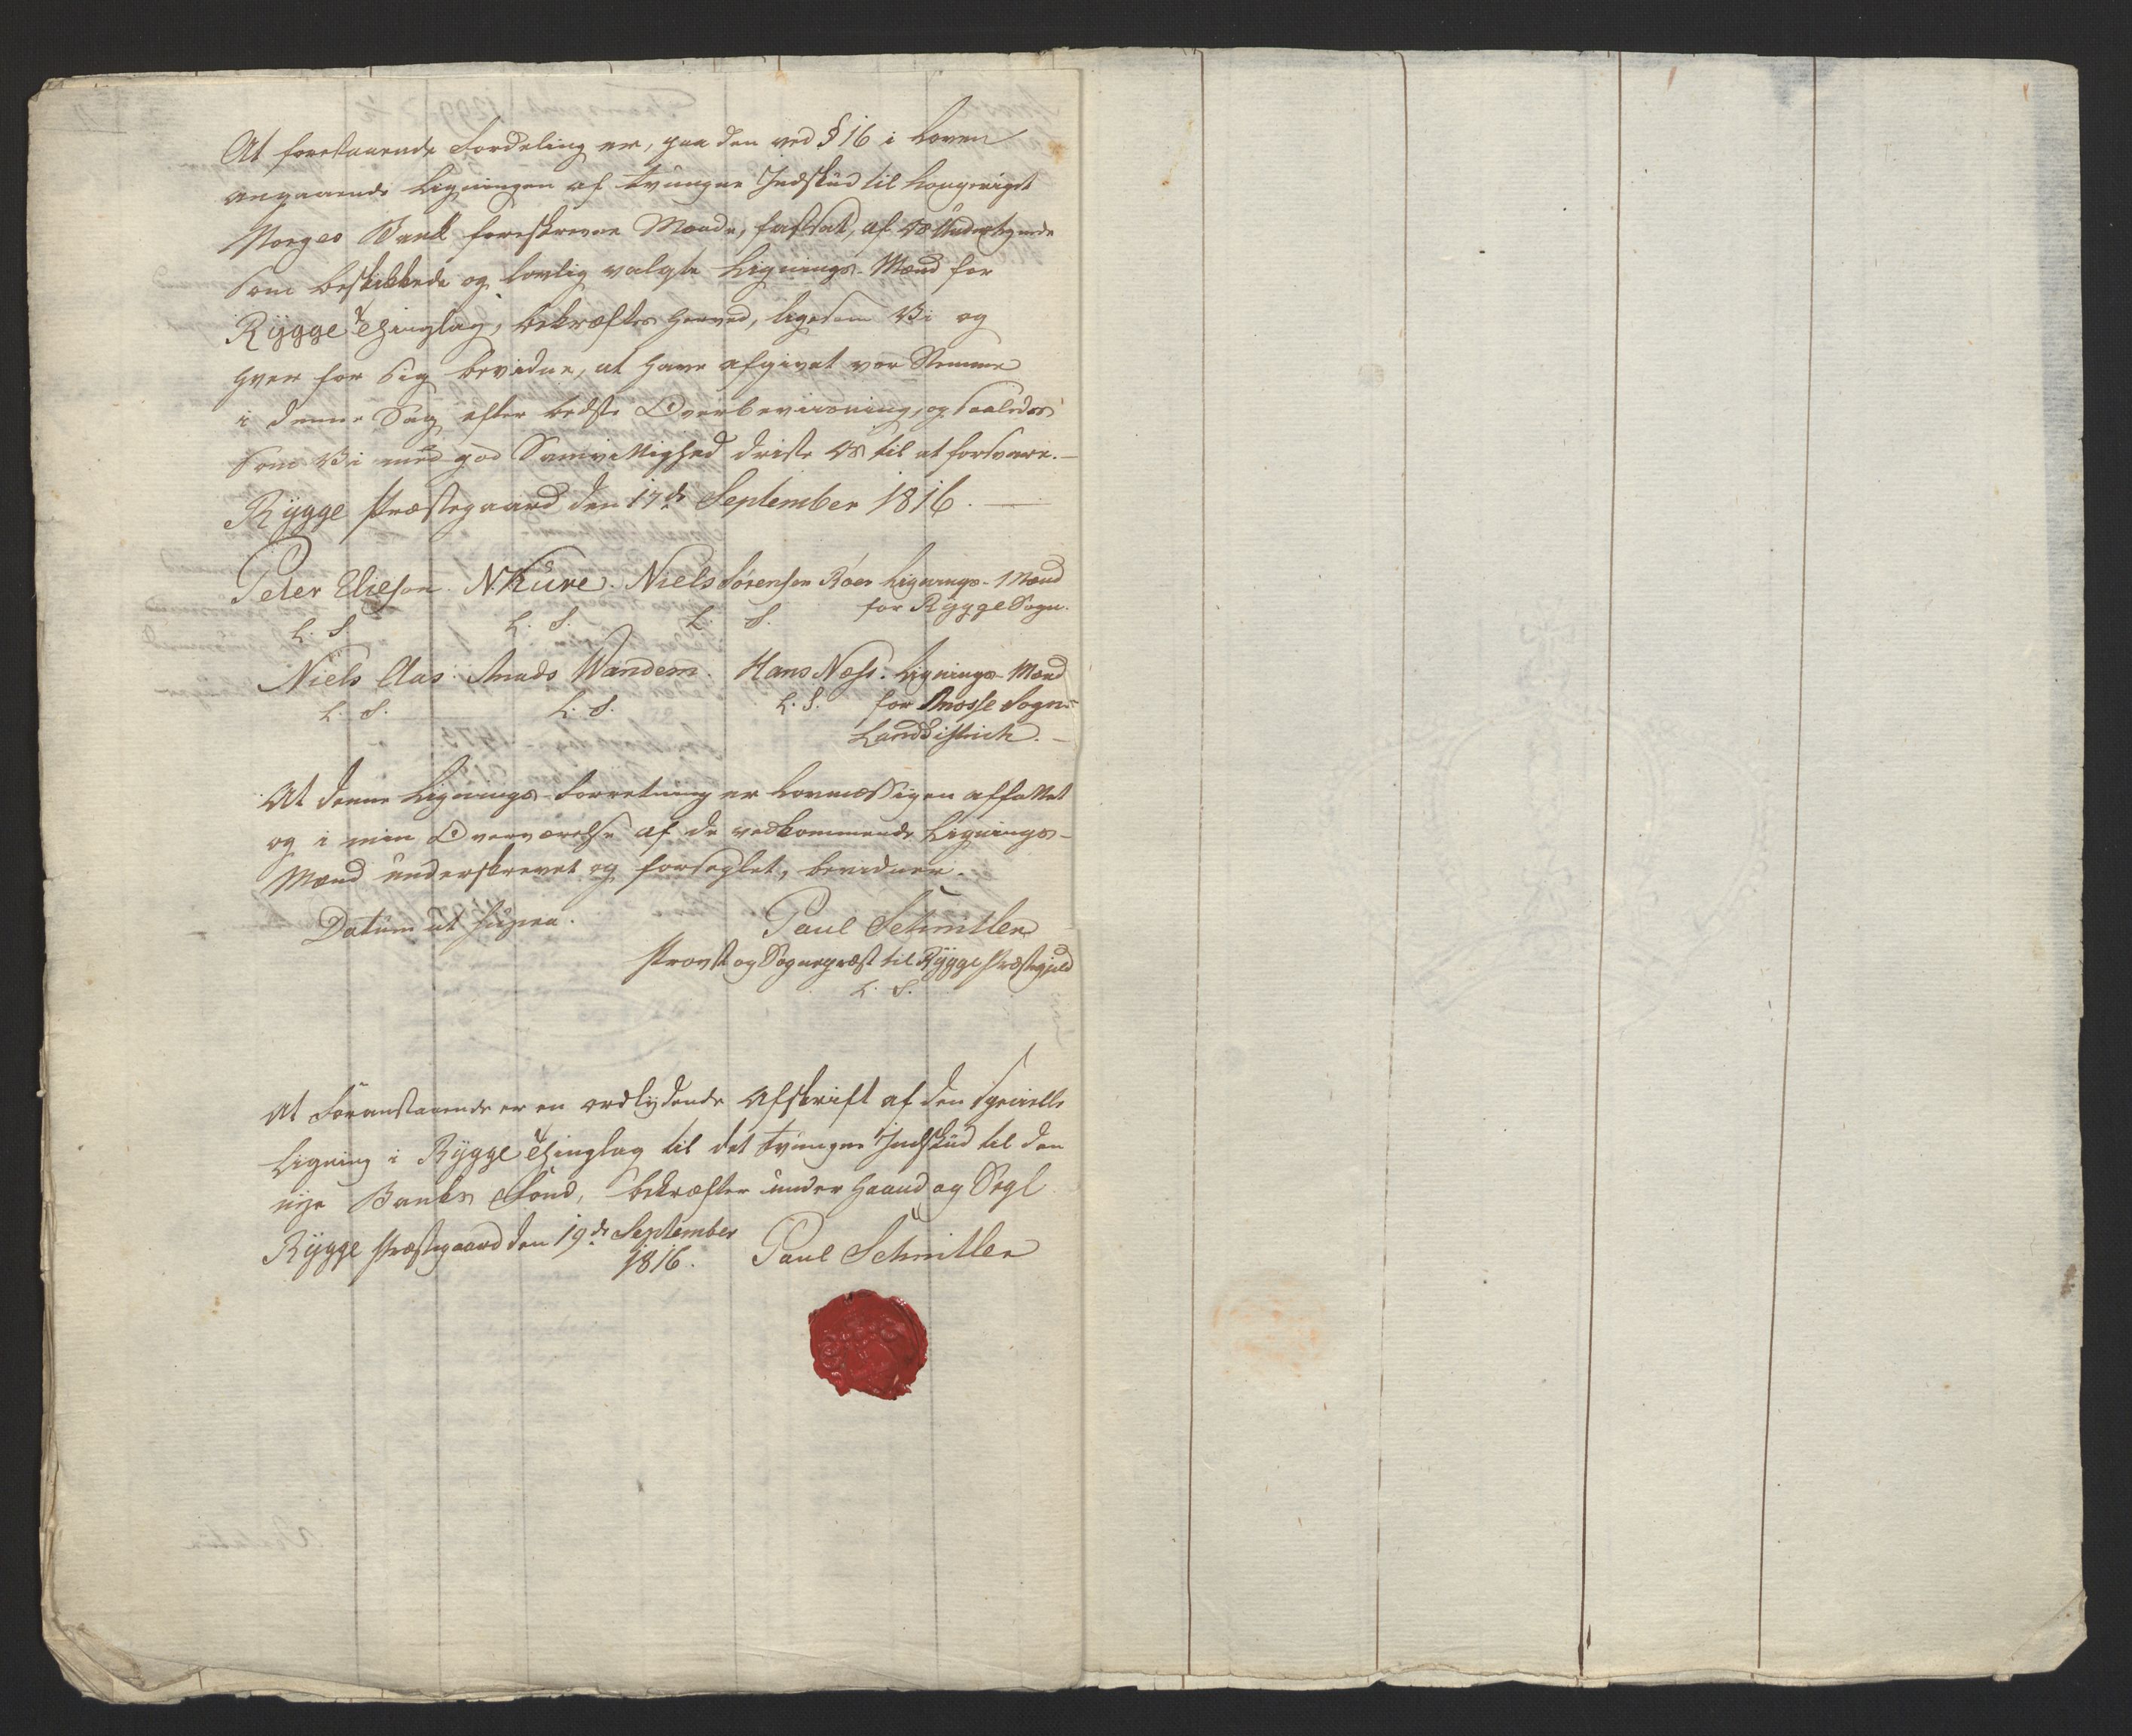 At forestaaende Fordeling er, paa den ved § 16 i Loven
angaaende Ligningen af tvungne Indskud til Kongeriget
Norges Bank foreskrevne Maade, fastsat, af os Undertegnede
som beskikkede og lovlig valgte Lignings-Mænd for
Rygge Thinglag, bekræftes herved, ligesom Vi og
hver for sig bevidne, at have afgivet vor Stemme
i denne Sag efter bedste Overbeviisning, og saaledes
som Vi med god Samvittighed driste os til at forsvare. —
Rygge Præstegaard den 17de September 1816. —
Peter Elieson. N. Kure. Niels Sørensen Roer Lignings-Mænd
for Rygge Sogn.
L. S. L. S. L. S.
Niels Aas. Mads Wandem. Hans Næss. Lignings-Mænd
L. S. L. S. L. S. for Mosse Sogns
Landdistrict. —
At denne Lignings-Forretning er Lovmæssigen affattet
og i min Overværelse af de vedkommende Lignings-
Mænd underskrevet og forseglet, bevidner.
Datum ut supra. Paul Schnitler
Provst og Sognepræst til Rygge Præstegjeld
L. S.
At Foranstaaende er en ordlydende Afskrift af den specielle
Ligning i Rygge Thinglag til det tvungne Indskud til den
nye Banks Fond, bekræfter under Haand og Segl
Rygge Præstegaard den 19de September
1816. Paul Schnitler